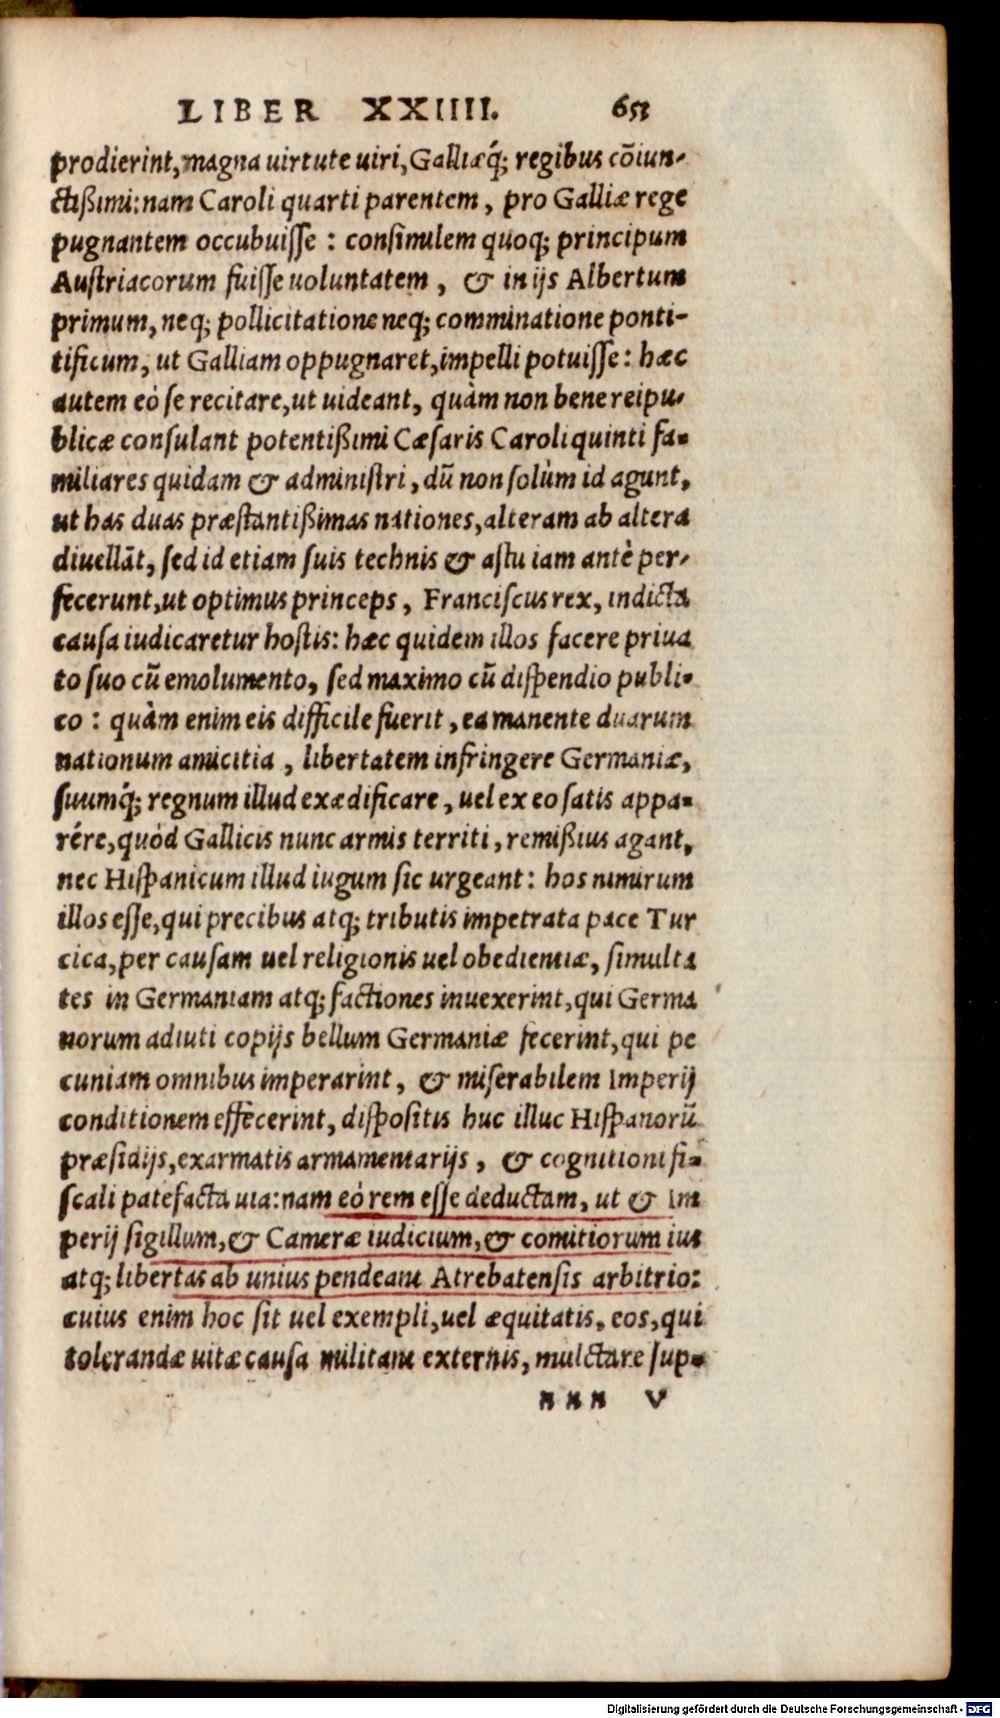 LIBER XXIIII. 651
prodierint, magna uirtute uiri, Galliæq́; regibus cōiun-
ctißimi: nam Caroli quarti parentem, pro Galliæ rege
pugnantem occubuisse : consimilem quoq; principum
Austriacorum fuisse uoluntatem, & in ijs Albertum
primum, neq; pollicitatione neq; comminatione ponti-
tificum, ut Galliam oppugnaret, impelli potuisse: hæc
autem eò se recitare, ut uideant, quàm non bene reipu-
blicæ consulant potentißimi Cæsaris Caroli quinti fa-
miliares quidam & administri, dū non solùm id agunt,
ut has duas præstantißimas nationes, alteram ab altera
diuellāt, sed id etiam suis technis & astu iam antè per-
fecerunt, ut optimus princeps, Franciscus rex, indicta
causa iudicaretur hostis: hæc quidem illos facere priua
to suo cū emolumento, sed maximo cū dispendio publi-
co : quàm enim eis difficile fuerit, ea manente duarum
nationum amicitia, libertatem infringere Germaniæ,
suumq́; regnum illud exædificare, uel ex eo satis appa-
rére, quòd Gallicis nunc armis territi, remißius agant,
nec Hispanicum illud iugum sic urgeant: hos nimirum
illos esse, qui precibus atq; tributis impetrata pace Tur
cica, per causam uel religionis uel obedientiæ, simulta
tes in Germaniam atq; factiones inuexerint, qui Germa
norum adiuti copijs bellum Germaniæ fecerint, qui pe
cuniam omnibus imperarint, & miserabilem Imperij
conditionem effecerint, dispositis huc illuc Hispanorū
præsidijs, exarmatis armamentarijs, & cognitioni fi-
scali patefacta uia: nam eò rem esse deductam, ut & Im
perij sigillum, & Cameræ iudicium, & comitiorum ius
atq; libertas ab unius pendeant Atrebatensis arbitrio:
cuius enim hoc sit uel exempli, uel æquitatis, eos, qui
tolerandæ uitæ causa militant externis, mulctare sup-
nnn v
Digitalisierung gefördert durch die Deutsche Forschungsgemeinschaft - DFG